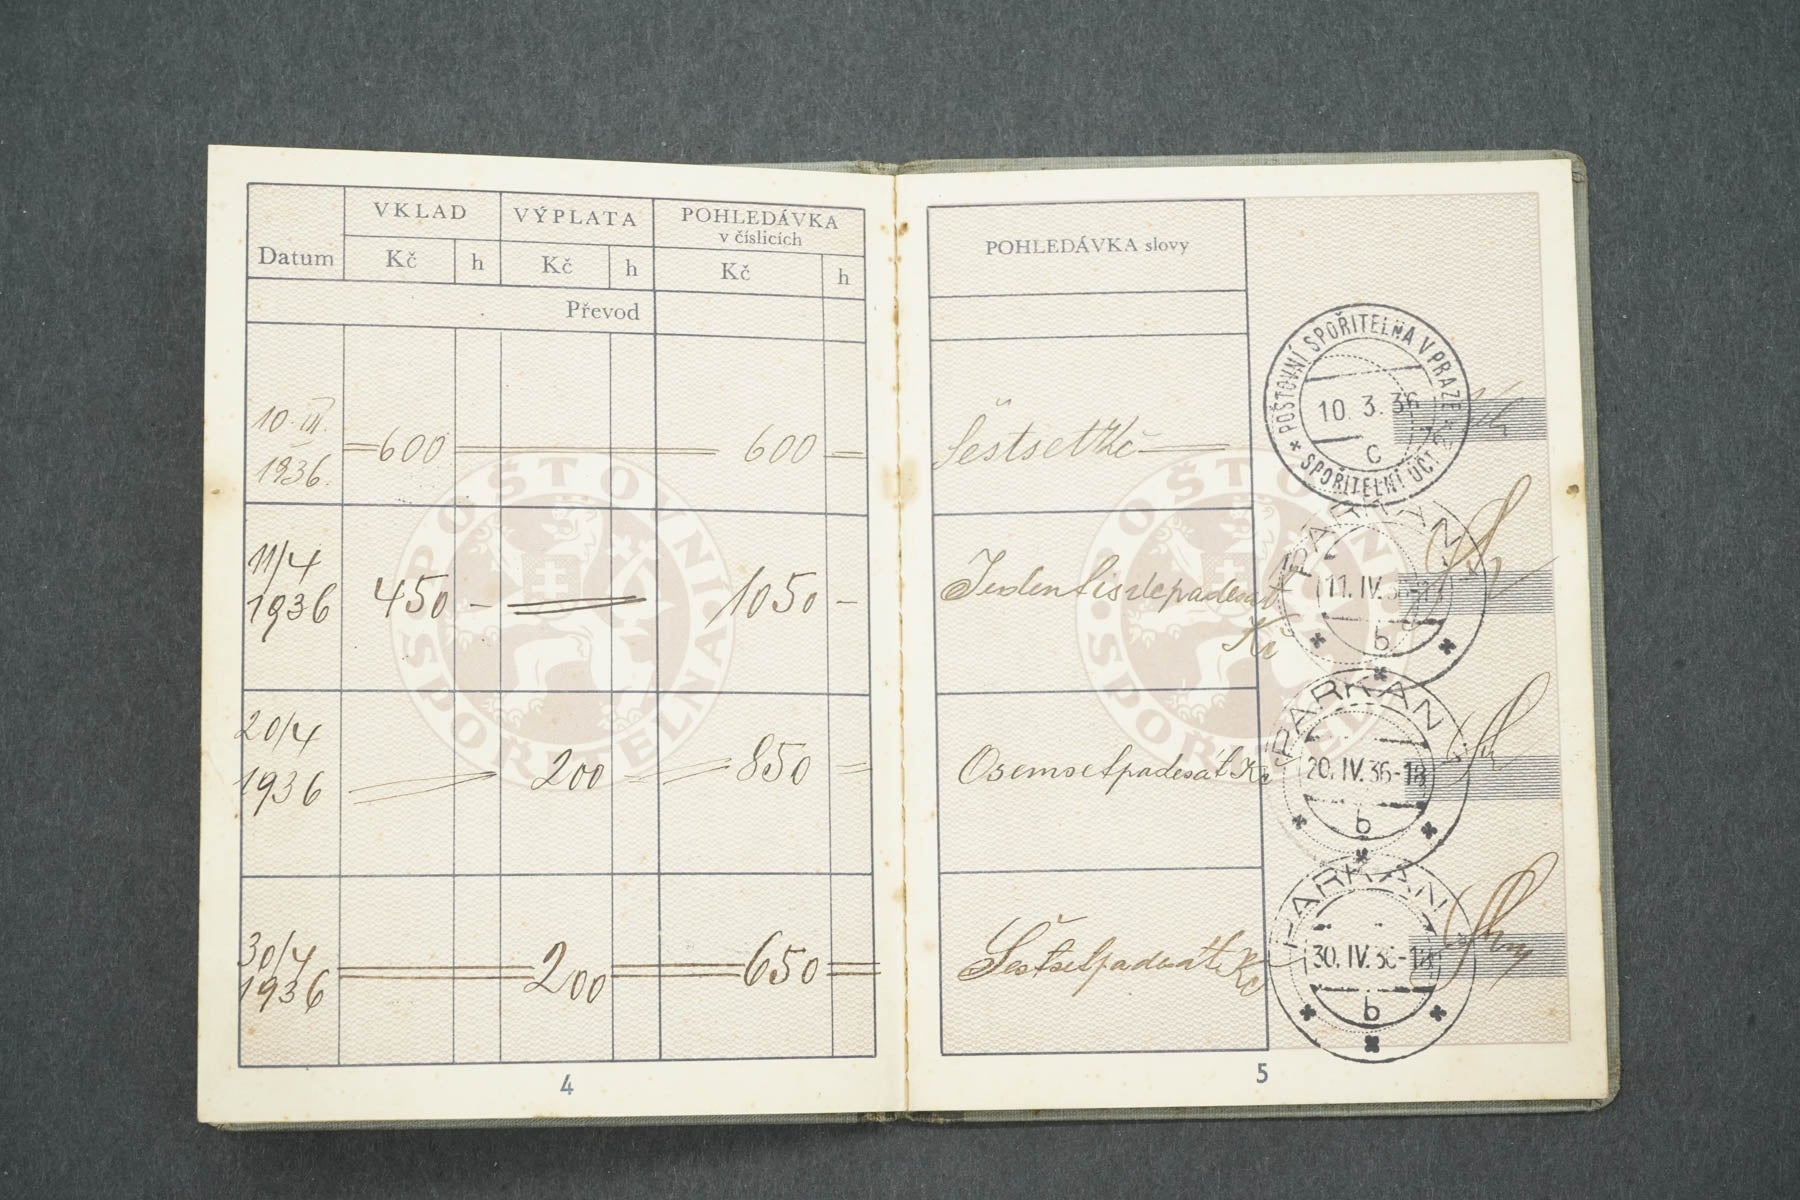 Datum
VKLAD
VÝPLATA
POHLEDÁVKA
v číslicích
Kč h Kč h Kč h
Převod
10. III.
1936. 600 600
11/4
1936 450 - 1050 -
20/4
1936 200 850
30/4
1936 200 650
POŠTOVNÍ
SPOŘITELNA
4
POHLEDÁVKA slovy
Šestset Kč
Jedentisícpadesát
Kč
Osemsetpadesát Kč
Šestsetpadesát Kč
POŠTOVNÍ
SPOŘITELNA
POŠTOVNÍ SPOŘITELNA V PRAZE
10. 3. 36
c
* SPOŘITELNÍ ÚČT.
PARKAN
11. IV. 36
b
PARKAN
20. IV. 36-18
b
PARKAN
30. IV. 36-18
b
5